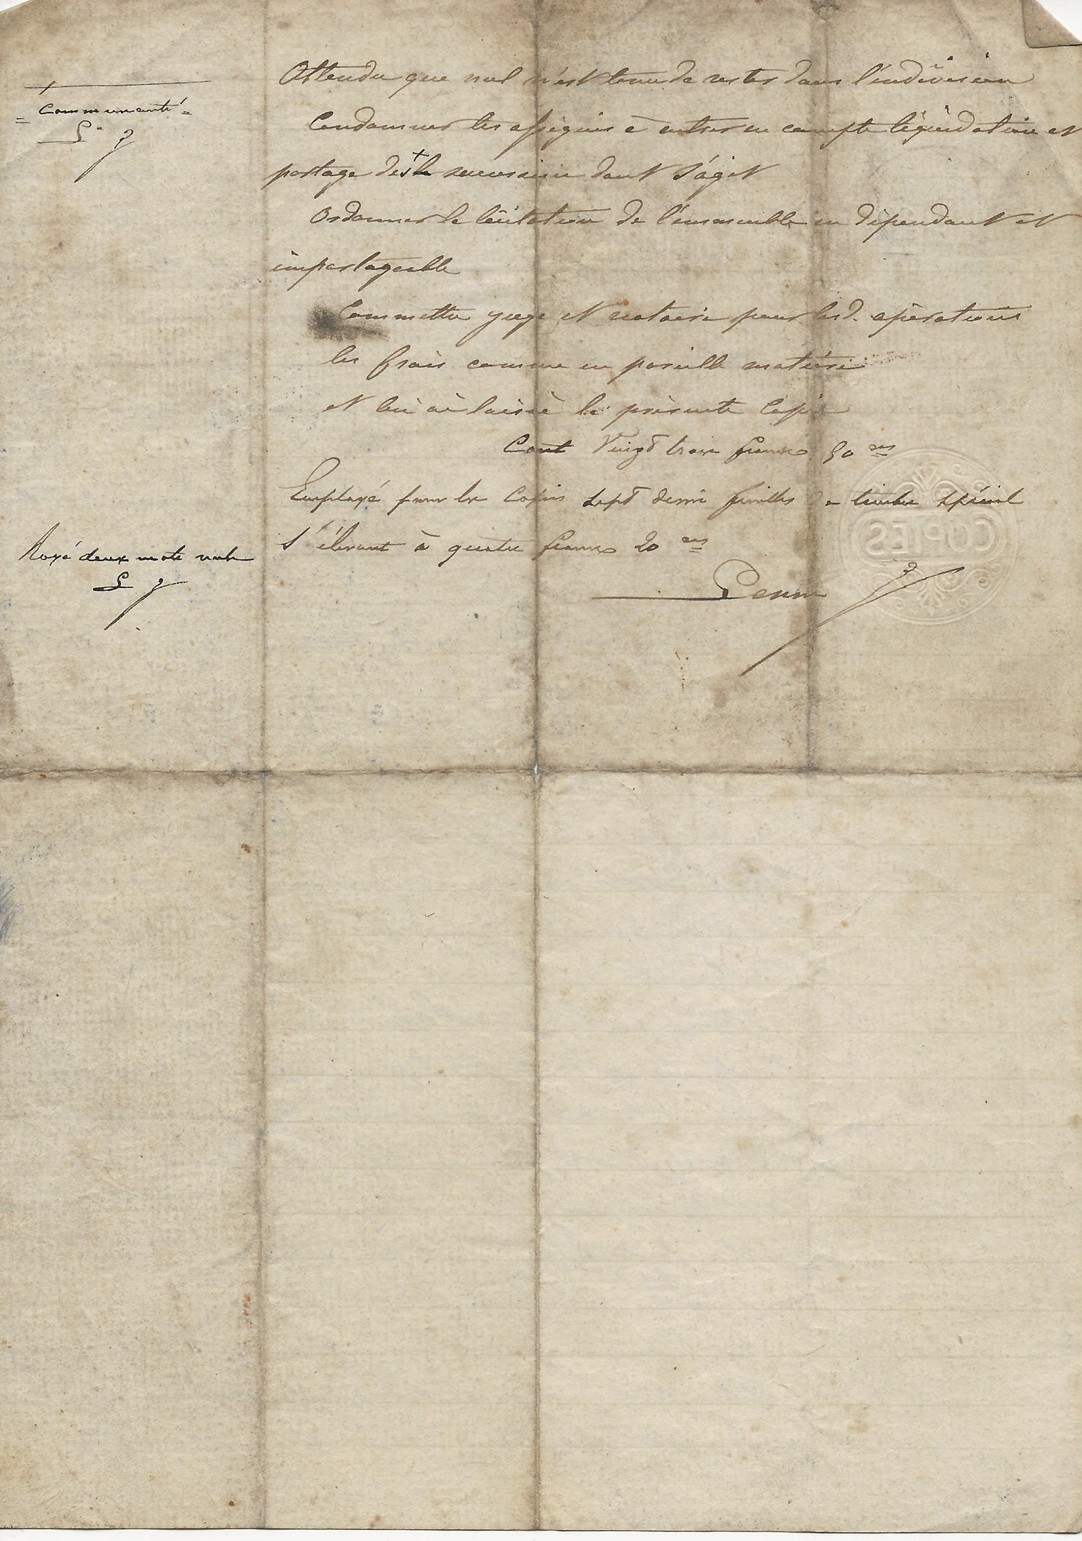 Attendu que nul n'est tenu de rester dans l'indivision
+
= Communauté =
Condamner les assignés à entrer en compte liquidation et
partage des + la succession dont s'agit
Ordonner la licitation de l'immeuble en dépendant et
impartageable
Commettre juge et notaire pour lesd. opérations
les frais comme en pareille matière
et lui ai laissé la présente Copie
Cout Vingt trois francs 50 ces
Employé pour les Copies sept demi feuilles de timbre spécial
s'élevant à quatre francs 20 ces
Rayé deux mots nuls
COPIES